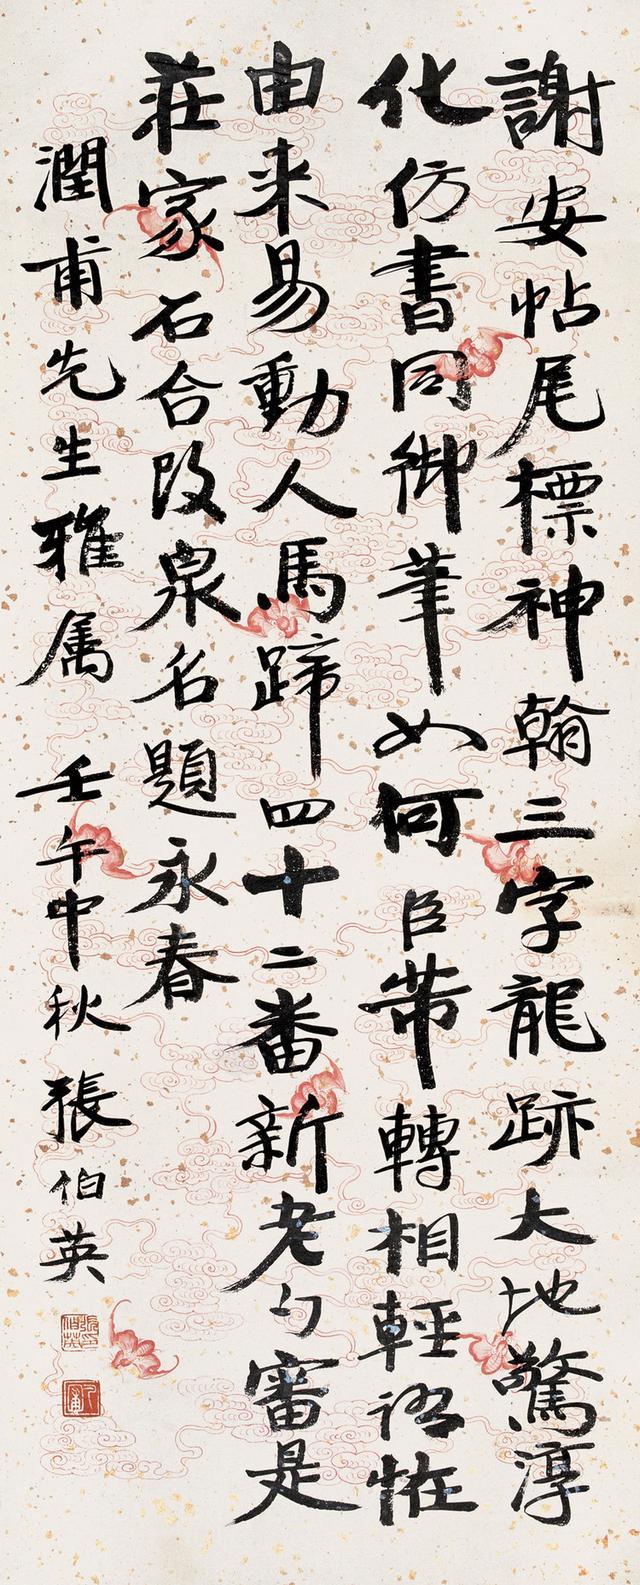 謝安帖尾標神翰三字龍跡大地驚淳
化仿書同御筆如何臣帶轉相輕諺恠
由来易動人馬蹄四十二番新老勻審是
莊家石合改泉名題永春
潤甫先生雅属 壬午中秋 張伯英